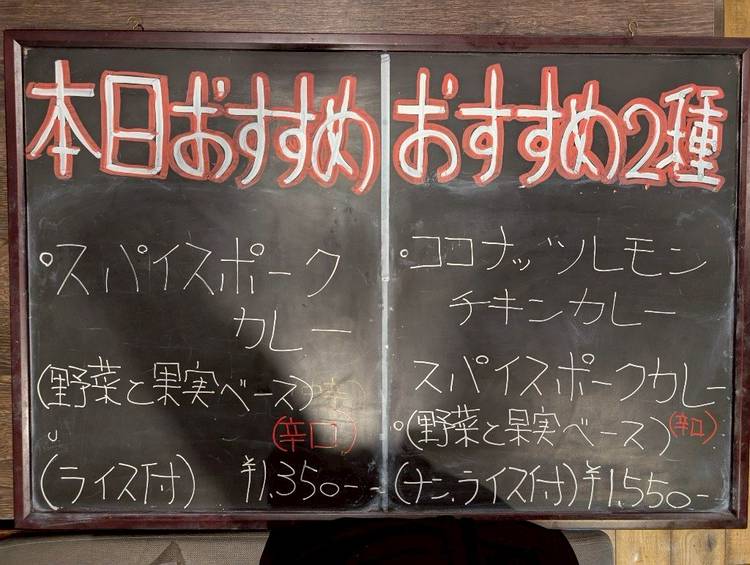 本日おすすめ
スパイスポーク
カレー
(野菜と果実ベース)
(辛口)
(ライス付) ¥1,350-
おすすめ2種
ココナッツレモン
チキンカレー
スパイスポークカレー
(野菜と果実ベース)(辛口)
(ナン、ライス付)¥1,550-